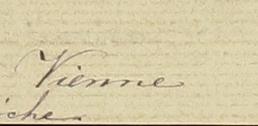 Vienne
iche.